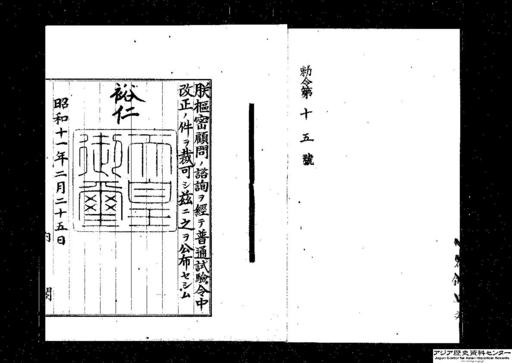 勅令第十五號
朕樞密顧問ノ諮詢ヲ經テ普通試驗令中
改正ノ件ヲ裁可シ茲ニ之ヲ公布セシム
裕仁
天皇御璽
昭和十一年二月二十五日
内閣
アジア歴史資料センター
Japan Center for Asian Historical Records